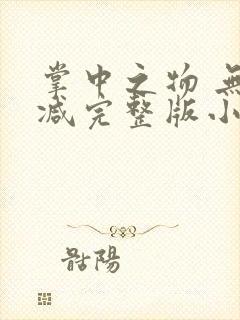 掌中之物 無
减完整版小
骷陽